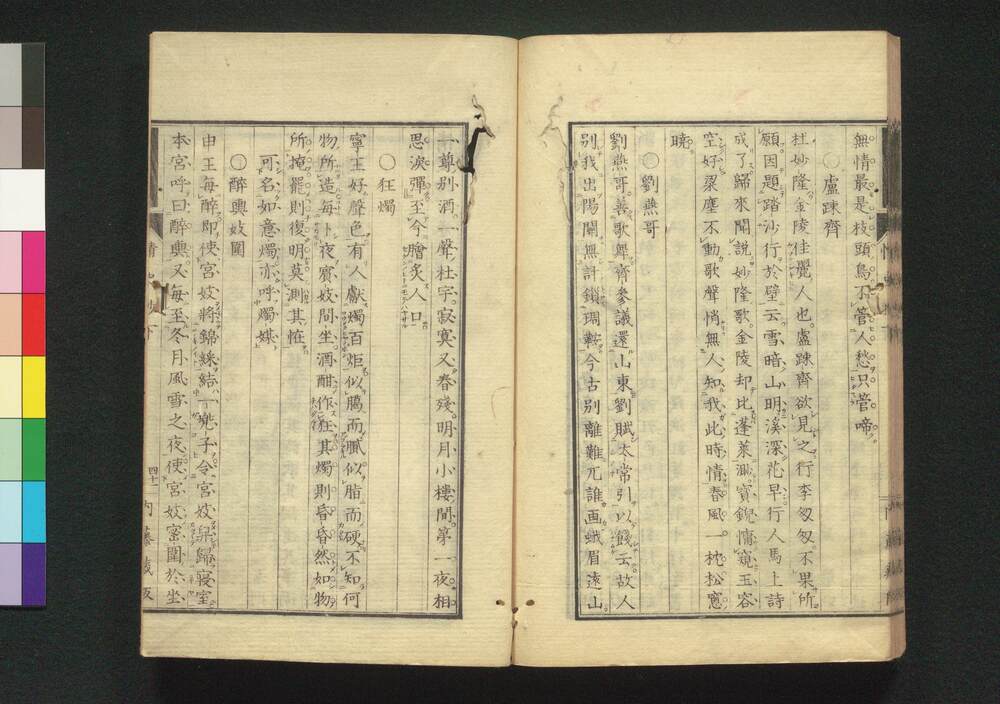 無情最是枝頭鳥不管人愁只管啼
○盧踈齊
杜妙隆金陵佳麗人也盧踈齊欲見之行李匆匆不果所
願因題踏沙行於壁云雪暗山明溪深花早行人馬上詩
成了歸來聞說妙隆歌金陵却比蓬萊渺寶鏡慵窺玉容
空好梁塵不動歌聲悄無人知我此時情春風一枕松窓
曉
○劉燕哥
劉燕哥善歌舞齊參議還山東劉賦太常引以餞云故人
別我出陽關無計鎖琱鞍今古別離難兀誰画蛾眉遠山
一尊別酒一聲杜宇寂寞又春殘明月小樓間第一夜相
思淚彈至今膾炙人口
○狂燭
寧王好聲色有人獻燭百炬似臈而膩似脂而硬不知何
物所造每卜夜賓妓間坐酒酣作狂其燭則昏昏然如物
所掩罷則復明莫測其恠
可名如意燭亦呼燭媒
○醉輿妓圍
申王每醉即使宮妓將錦綵結一兠子令宮妓舁歸寢室
本宮呼曰醉輿又每至冬月風雪之夜使宮妓密圍於坐
四十一
內藤藏版